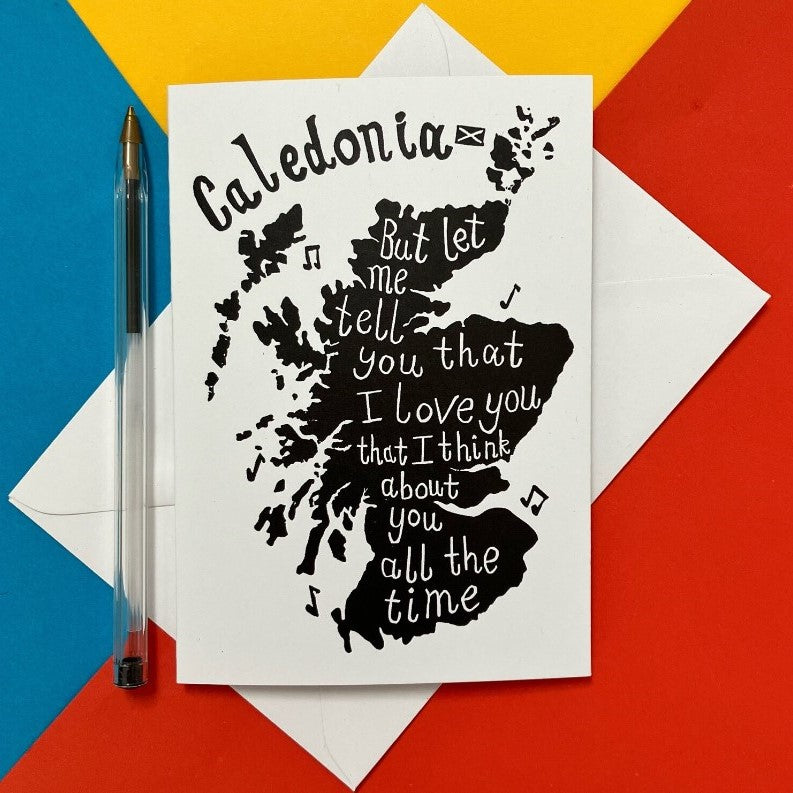 Caledonia
But let
me
tell
you that
I love you
that I think
about
you
all the
time